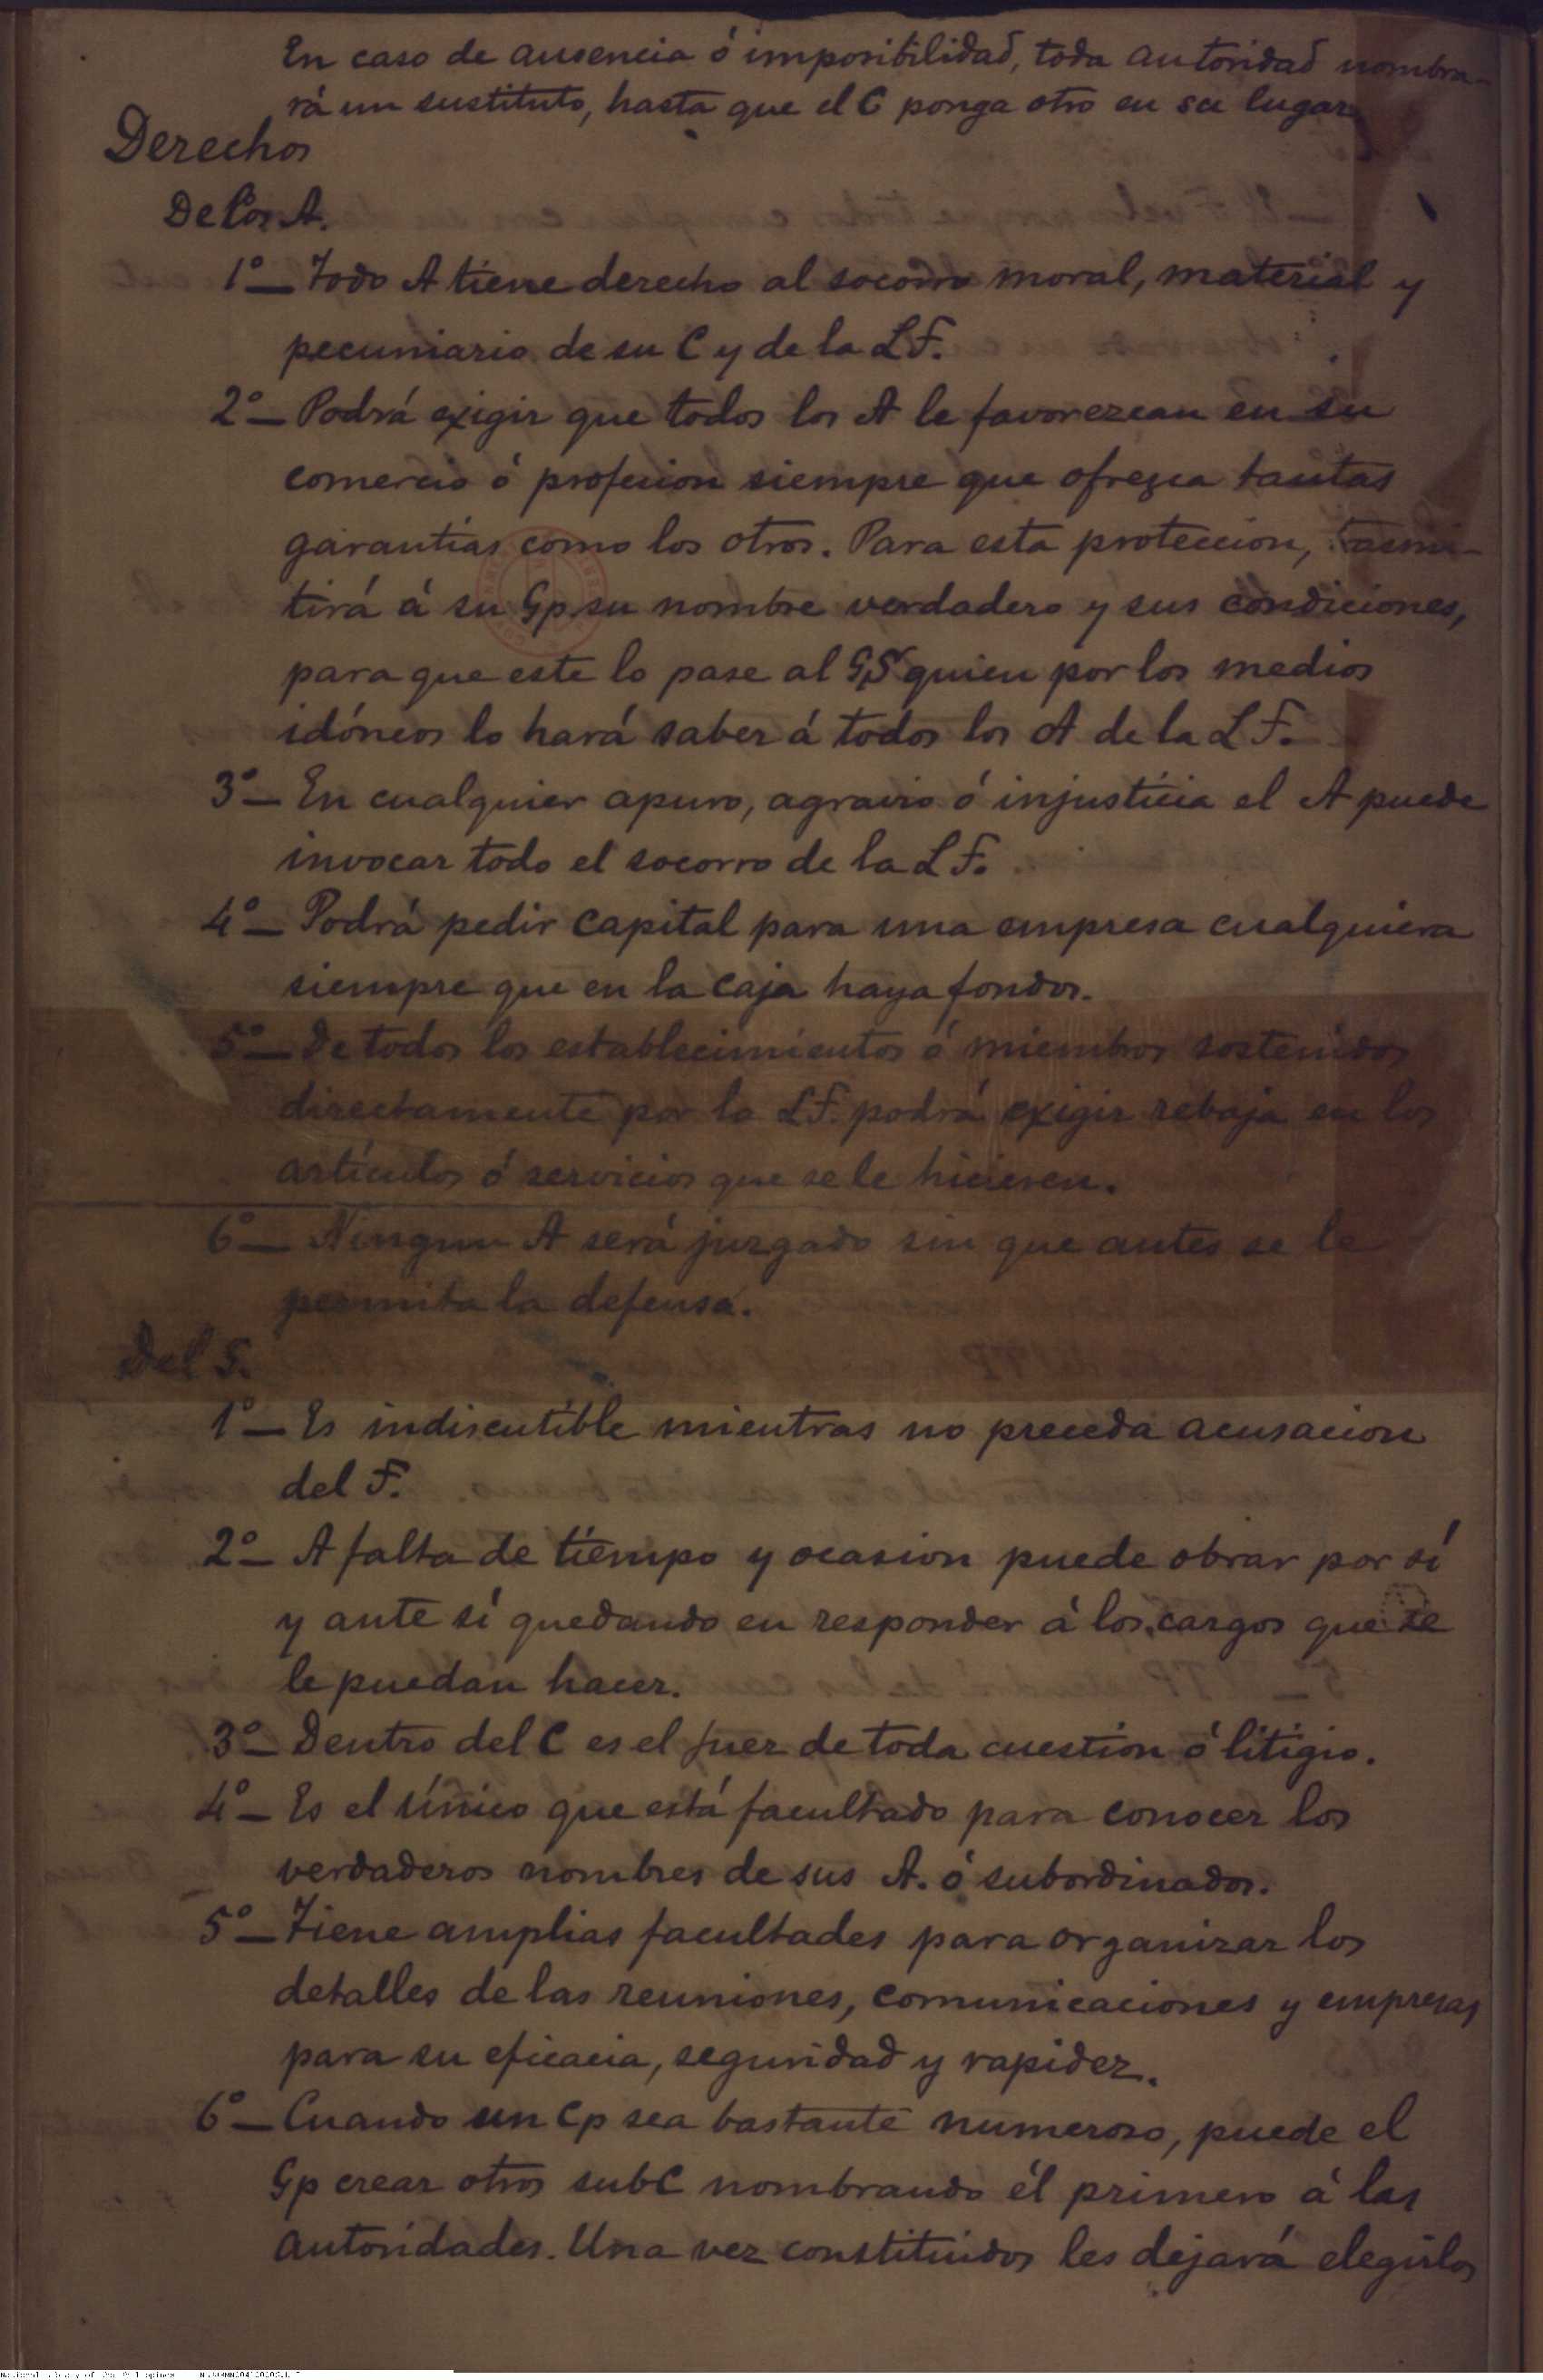 En caso de ausencia ó imposibilidad, toda autoridad nombra-
rá un sustituto, hasta que el C ponga otro en su lugar.
Derechos
De los A.
1º— Todo A tiene derecho al socorro moral, material y
pecuniario de su C y de la L F.
2º— Podrá exigir que todos los A le favorezcan en su
comercio ó profesion siempre que ofrezca tantas
garantías como los otros. Para esta proteccion, trasmi-
tirá á su Gp. su nombre verdadero y sus condiciones,
para que este lo pase al GS quien por los medios
idóneos lo hará saber á todos los A de la L F.
3º— En cualquier apuro, agravio ó injusticia el A puede
invocar todo el socorro de la L F.
4º— Podrá pedir capital para una empresa cualquiera
siempre que en la caja haya fondos.
5º— De todos los establecimientos ó miembros sostenidos
directamente por la L F. podrá exigir rebaja en los
artículos ó servicios que se le hicieren.
6º— Ningun A será juzgado sin que antes se le
permita la defensa.
Del G.
1º— Es indiscutible mientras no preceda acusacion
del F.
2º— A falta de tiempo y ocasion puede obrar por sí
y ante sí quedando en responder á los cargos que se
le puedan hacer.
3º— Dentro del C es el juez de toda cuestion ó litigio.
4º— Es el único que está facultado para conocer los
verdaderos nombres de sus A. ó subordinados.
5º— Tiene amplias facultades para organizar los
detalles de las reuniones, comunicaciones y empresas
para su eficacia, seguridad y rapidez.
6º— Cuando un Cp sea bastante numeroso, puede el
Gp crear otros subC nombrando él primero á las
autoridades. Una vez constituidos les dejará elegirlos